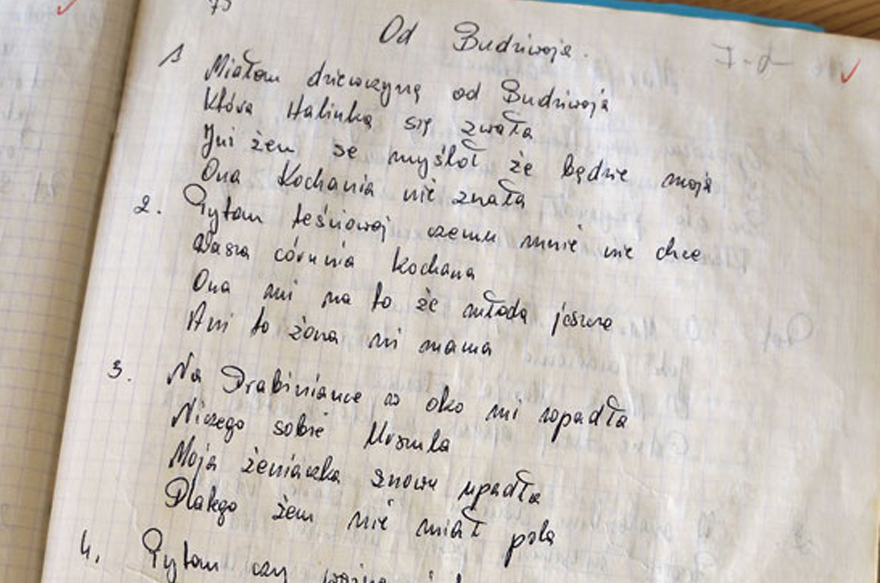 75
Od Budziwoja.
1 Miałem dziewczynę od Budziwoja
Która Halinką się zwała
Już żem se myśloł że będzie moja
Ona kochania nie znała
2. Pytam teściowej czemu mnie nie chce
Wasza córunia kochana
Ona mi na to że młoda jeszcze
Ani to żona ni mama
3. Na Drabiniance w oko mi wpadła
Niczego sobie Urszula
Moja żeniaczka znowu upadła
Dlatego żem nie miał pola
4. Pytam czy